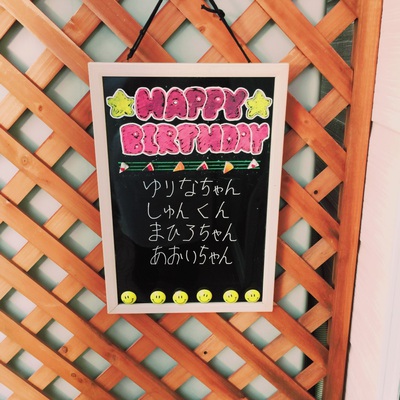 HAPPY
BIRTHDAY
ゆりなちゃん
しゅんくん
まひろちゃん
あおいちゃん